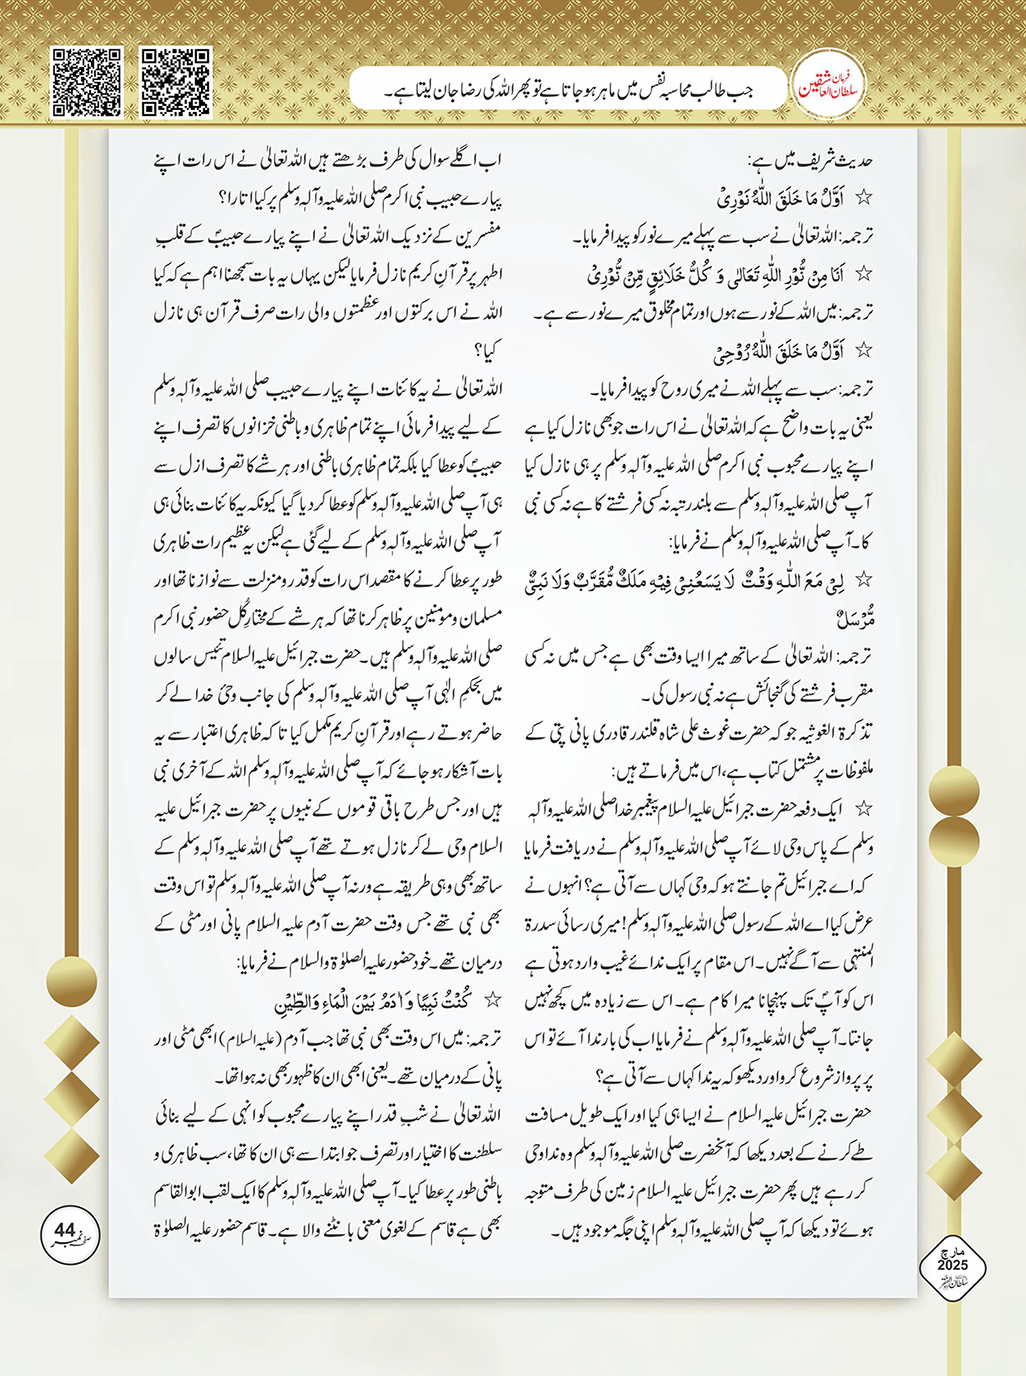 جب طالب محاسبہ نفس میں ماہر ہو جاتا ہے تو پھر اللہ کی رضا جان لیتا ہے۔
فرمان
سلطان العاشقین
حدیث شریف میں ہے:
☆ اَوَّلُ مَا خَلَقَ اللّٰهُ نَوْرِیْ
ترجمہ: اللہ تعالیٰ نے سب سے پہلے میرے نور کو پیدا فرمایا۔
☆ اَنَا مِنْ نُّوْرِ اللّٰهِ تَعَالٰی وَ کُلُّ خَلَائِقٍ مِّنْ نُّوْرِیْ
ترجمہ: میں اللہ کے نور سے ہوں اور تمام مخلوق میرے نور سے ہے۔
☆ اَوَّلُ مَا خَلَقَ اللّٰهُ رُوْحِیْ
ترجمہ: سب سے پہلے اللہ نے میری روح کو پیدا فرمایا۔
یعنی یہ بات واضح ہے کہ اللہ تعالیٰ نے اس رات جو بھی نازل کیا ہے
اپنے پیارے محبوب نبی اکرم صلی اللہ علیہ وآلہٖ وسلم پر ہی نازل کیا
آپ صلی اللہ علیہ وآلہٖ وسلم سے بلند رتبہ نہ کسی فرشتے کا ہے نہ کسی نبی
کا۔ آپ صلی اللہ علیہ وآلہٖ وسلم نے فرمایا:
☆ لِیْ مَعَ اللّٰهِ وَقْتٌ لَا یَسَعُنِیْ فِیْهِ مَلَکٌ مُّقَرَّبٌ وَلَا نَبِیٌّ
مُّرْسَلٌ
ترجمہ: اللہ تعالیٰ کے ساتھ میرا ایسا وقت بھی ہے جس میں نہ کسی
مقرب فرشتے کی گنجائش ہے نہ نبی رسول کی۔
تذکرۃ الغوثیہ جو کہ حضرت غوث علی شاہ قلندر قادری پانی پتی کے
ملفوظات پر مشتمل کتاب ہے، اس میں فرماتے ہیں:
☆ ایک دفعہ حضرت جبرائیل علیہ السلام پیغمبرِ خدا صلی اللہ علیہ وآلہٖ
وسلم کے پاس وحی لائے آپ صلی اللہ علیہ وآلہٖ وسلم نے دریافت فرمایا
کہ اے جبرائیل تم جانتے ہو کہ وحی کہاں سے آتی ہے؟ انہوں نے
عرض کیا اے اللہ کے رسول صلی اللہ علیہ وآلہٖ وسلم! میری رسائی سدرۃ
المنتہی سے آگے نہیں۔ اس مقام پر ایک ندائے غیب وارد ہوتی ہے
اس کو آپؐ تک پہنچانا میرا کام ہے۔ اس سے زیادہ میں کچھ نہیں
جانتا۔ آپ صلی اللہ علیہ وآلہٖ وسلم نے فرمایا اب کی بار ندا آئے تو اس
پر پرواز شروع کرو اور دیکھو کہ یہ ندا کہاں سے آتی ہے؟
حضرت جبرائیل علیہ السلام نے ایسا ہی کیا اور ایک طویل مسافت
طے کرنے کے بعد دیکھا کہ آنحضرت صلی اللہ علیہ وآلہٖ وسلم وہ ندا و حی
کر رہے ہیں پھر حضرت جبرائیل علیہ السلام زمین کی طرف متوجہ
ہوئے تو دیکھا کہ آپ صلی اللہ علیہ وآلہٖ وسلم اپنی جگہ موجود ہیں۔
اب اگلے سوال کی طرف بڑھتے ہیں اللہ تعالیٰ نے اس رات اپنے
پیارے حبیب نبی اکرم صلی اللہ علیہ وآلہٖ وسلم پر کیا اتارا؟
مفسرین کے نزدیک اللہ تعالیٰ نے اپنے پیارے حبیبؐ کے قلبِ
اطہر پر قرآنِ کریم نازل فرمایا لیکن یہاں یہ بات سمجھنا اہم ہے کہ کیا
اللہ نے اس برکتوں اور عظمتوں والی رات صرف قرآن ہی نازل
کیا؟
اللہ تعالیٰ نے یہ کائنات اپنے پیارے حبیب صلی اللہ علیہ وآلہٖ وسلم
کے لیے پیدا فرمائی اپنے تمام ظاہری و باطنی خزانوں کا تصرف اپنے
حبیبؐ کو عطا کیا بلکہ تمام ظاہری باطنی اور ہر شے کا تصرف ازل سے
ہی آپ صلی اللہ علیہ وآلہٖ وسلم کو عطا کر دیا گیا کیونکہ یہ کائنات بنائی ہی
آپ صلی اللہ علیہ وآلہٖ وسلم کے لیے گئی ہے لیکن یہ عظیم رات ظاہری
طور پر عطا کرنے کا مقصد اس رات کو قدر و منزلت سے نوازنا تھا اور
مسلمان و مومنین پر ظاہر کرنا تھا کہ ہر شے کے مختارِ کُل حضور نبی اکرم
صلی اللہ علیہ وآلہٖ وسلم ہیں۔ حضرت جبرائیل علیہ السلام تیئس سالوں
میں بحکمِ الٰہی آپ صلی اللہ علیہ وآلہٖ وسلم کی جانب وحیٔ خدا لے کر
حاضر ہوتے رہے اور قرآنِ کریم مکمل کیا تاکہ ظاہری اعتبار سے یہ
بات آشکار ہو جائے کہ آپ صلی اللہ علیہ وآلہٖ وسلم اللہ کے آخری نبی
ہیں اور جس طرح باقی قوموں کے نبیوں پر حضرت جبرائیل علیہ
السلام وحی لے کر نازل ہوتے تھے آپ صلی اللہ علیہ وآلہٖ وسلم کے
ساتھ بھی وہی طریقہ ہے ورنہ آپ صلی اللہ علیہ وآلہٖ وسلم تو اس وقت
بھی نبی تھے جس وقت حضرت آدم علیہ السلام پانی اور مٹی کے
درمیان تھے۔ خود حضور علیہ الصلوٰۃ والسلام نے فرمایا:
☆ کُنْتُ نَبِیًّا وَ اٰدَمُ بَیْنَ الْمَاءِ وَالطِّیْنِ
ترجمہ: میں اس وقت بھی نبی تھا جب آدم (علیہ السلام) ابھی مٹی اور
پانی کے درمیان تھے۔ یعنی ابھی ان کا ظہور بھی نہ ہوا تھا۔
اللہ تعالیٰ نے شبِ قدر اپنے پیارے محبوب کو انہی کے لیے بنائی
سلطنت کا اختیار اور تصرف جو ابتدا سے ہی ان کا تھا، سب ظاہری و
باطنی طور پر عطا کیا۔ آپ صلی اللہ علیہ وآلہٖ وسلم کا ایک لقب ابو القاسم
بھی ہے قاسم کے لغوی معنی بانٹنے والا ہے۔ قاسم حضور علیہ الصلوٰۃ
44
صفحہ نمبر
مارچ
2025